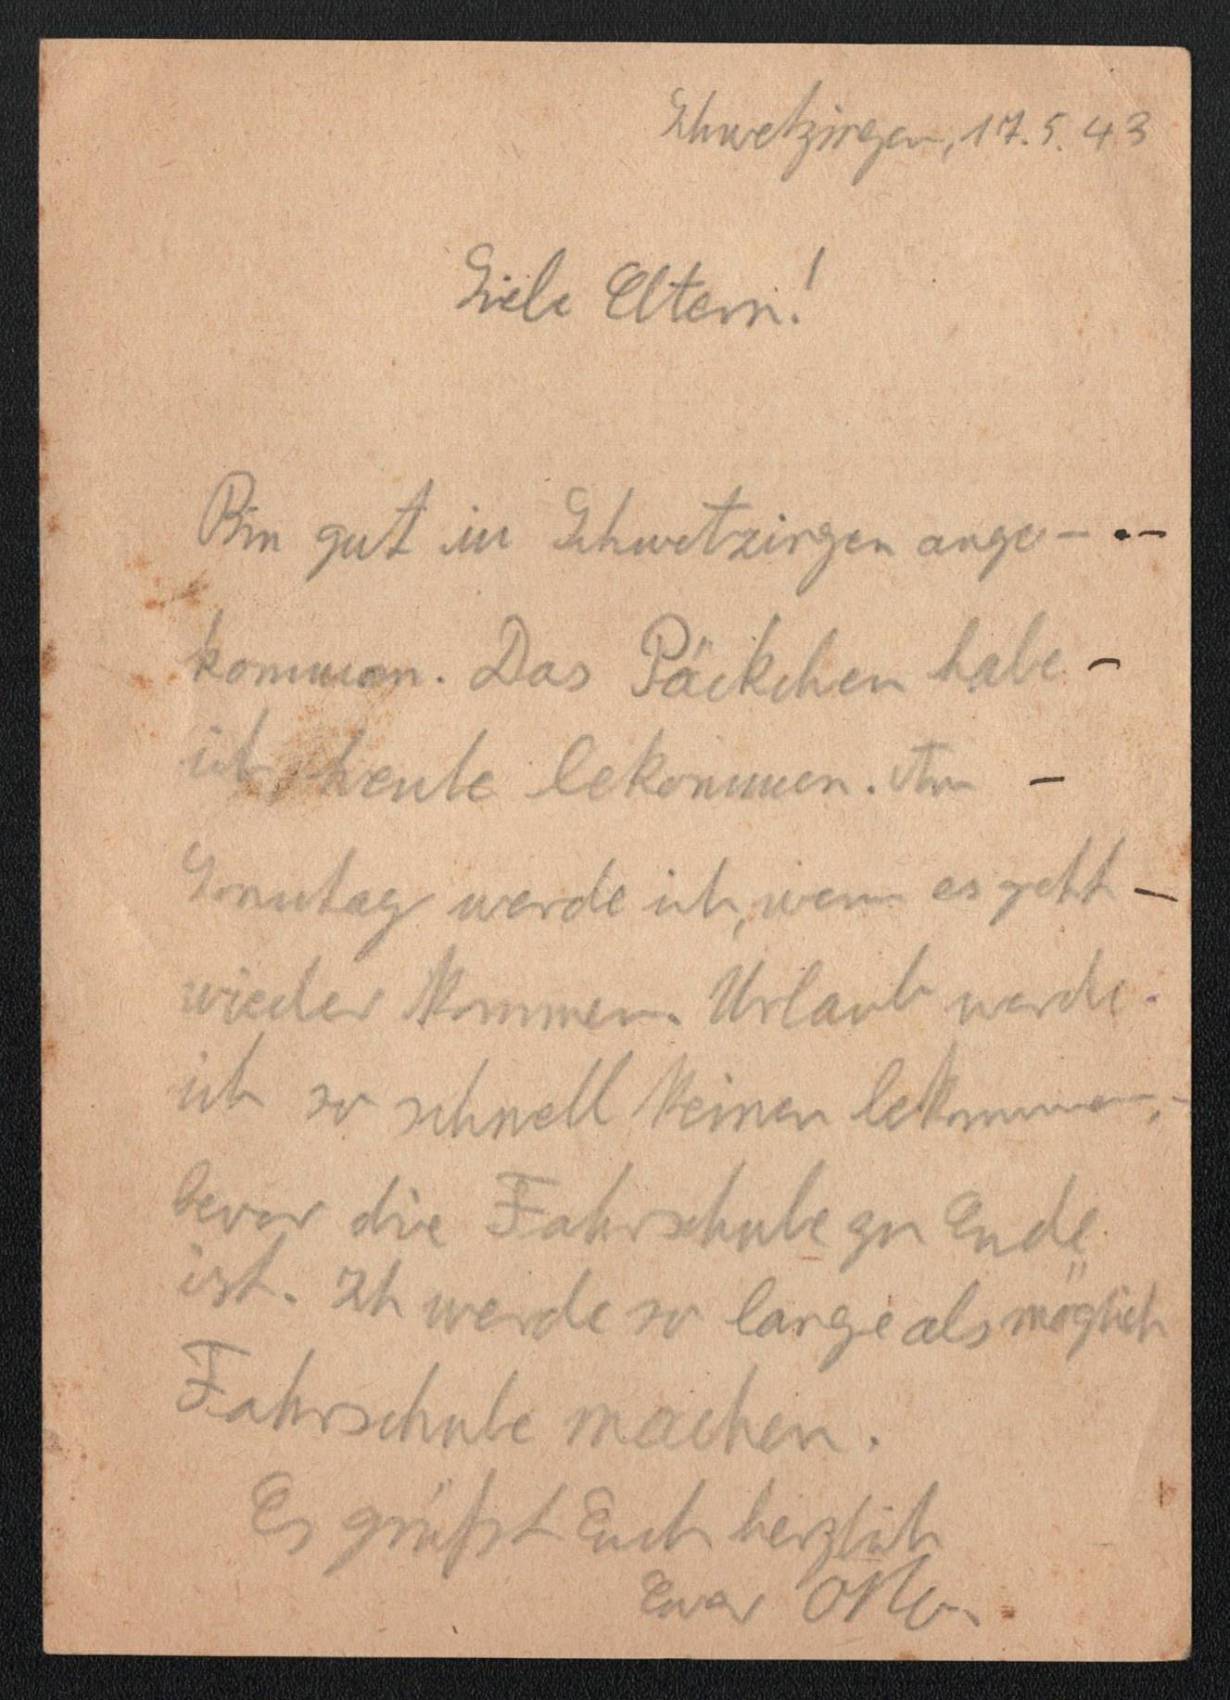 Schwetzingen, 17.5.43
Liebe Eltern!
Bin gut in Schwetzingen ange-
kommen. Das Päckchen habe
ich heute bekommen. Am
Sonntag werde ich, wenn es geht
wieder kommen. Urlaub werde
ich so schnell keinen bekommen,
bevor die Fahrschule zu Ende
ist. Ich werde so lange als möglich
Fahrschule machen.
Es grüßt Euch herzlich
Euer Otto